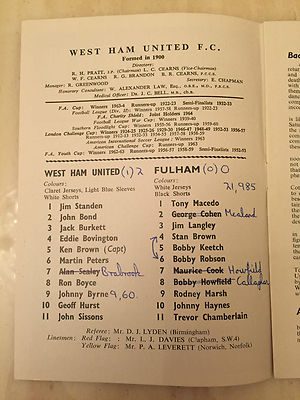 WEST HAM UNITED F.C.
Formed in 1900
Directors:
R. H. PRATT, J.P. (Chairman) L. C. CEARNS (Vice-Chairman)
W. F. CEARNS R. G. BRANDON B. R. CEARNS, F.C.C.S.
Manager: R. GREENWOOD Secretary: E. CHAPMAN
Honorary Consultant: W. ALEXANDER LAW, Esq., O.B.E., M.D., F.R.C.S.
Medical Officer: Dr. J. C. BELL, M.B., ch.B.
F.A. Cup: Winners 1963-4 Runners-up 1922-23 Semi-Finalists 1932-33
Football League (Div. II): Winners 1957-58 Runners-up 1922-23
F.A. Charity Shield: Joint Holders 1964
Football League War Cup: Winners 1939-40
Southern Floodlight Cup: Winners 1955-56 Runners-up 1959-60
London Challenge Cup: Winners 1924-25 1925-26 1929-30 1946-47 1948-49 1952-53 1956-57
Runners-up 1921-22 1927-28 1936-37 1953-54
American International Soccer League: Winners 1963
American Challenge Cup: Runners-up 1963
F.A. Youth Cup: Winners 1962-63 Runners-up 1956-57 1958-59 Semi-Finalists 1955-56
WEST HAM UNITED (1) 2 FULHAM (0) 0
Colours: Colours:
Claret Jerseys, Light Blue Sleeves White Jerseys 21,985
White Shorts Black Shorts
1 Jim Standen 1 Tony Macedo
2 John Bond 2 George Cohen Mealand
3 Jack Burkett 3 Jim Langley
4 Eddie Bovington 4 Stan Brown
5 Ken Brown (Capt) 5 Bobby Keetch
6 Martin Peters 6 Bobby Robson
7 Alan Sealey Brabrook 7 Maurice Cook Howfield
8 Ron Boyce 8 Bobby Howfield Callaghan
9 Johnny Byrne 9,60. 9 Rodney Marsh
10 Geoff Hurst 10 Johnny Haynes
11 John Sissons 11 Trevor Chamberlain
Referee: Mr. D. J. LYDEN (Birmingham)
Linesmen: Red Flag: Mr. L. J. DAVIES (Clapham, S.W.4)
Yellow Flag: Mr. P. A. LEVERETT (Norwich, Norfolk)